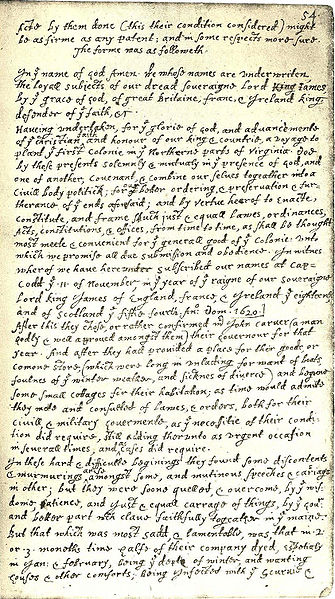 54
facts by them done (this their condition considered) might
be as firme as any patent; and in some respects more sure.
The forme was as followeth.
In yͤ name of god Amen. We whose names are underwriten,
the loyall subjects of our dread soveraigne Lord King James
by yͤ grace of god, of great Britaine, franc, & Ireland king,
defender of yͤ faith, &c
Haveing undertaken, for yͤ glorie of god, and advancemente
of yͤ christian faith and honour of our king & countrie, a voyage to
plant yͤ first colonie in yͤ Northerne parts of Virginia· Doe
by these presents solemnly & mutualy in yͤ presence of god, and
one of another, covenant, & combine our selves togeather into a
civill body politick; for our better ordering, & preservation & fur-
therance of yͤ ends aforesaid; and by vertue hearof to enacte,
constitute, and frame such just & equall lawes, ordinances,
Acts, constitutions, & offices, from time to time, as shall be thought
most meete & convenient for yͤ generall good of yͤ colonie: unto
which we promise all due submission and obedience. In witnes
wherof we have hereunder subscribed our names at Cap-
Codd yͤ ·11· of November, in yͤ year of yͤ raigne of our soveraigne
Lord king James of England, france, & Ireland yͤ eighteenth
and of Scotland yͤ fiftie fourth. An: Dom. 1620.|
After this they chose, or rather confirmed mͬ John Carver (a man
godly & well approved amongst them) their Governour for that
year. And after they had provided a place for their goods, or
comone store, (which were long in unlading for want of boats,
foulnes of yͤ winter weather, and sicknes of diverce) and begune
some small cottages for their habitation; as time would admitte
they mette and consulted of lawes, & orders, both for their
civill & military Governmente, as yͤ necessitie of their condi-
tion did require, still adding therunto as urgent occasion
in severall times, and as cases did require.
In these hard & difficulte beginings they found some discontents
& murmurings amongst some, and mutinous speeches & cariage
in other; but they were soone quelled, & overcome, by yͤ wis-
dome, patience, and just & equall carrage of things, by yͤ Govͬ
and better part wch clave faithfully togeather in yͤ maine.
But that which was most sadd, & lamentable, was, that in ·2·
or ·3· moneths time halfe of their company dyed, espetialy
in Jan: & february, being yͤ depth of winter, and wanting
houses & other comforts; being Infected with yͤ scurvie &